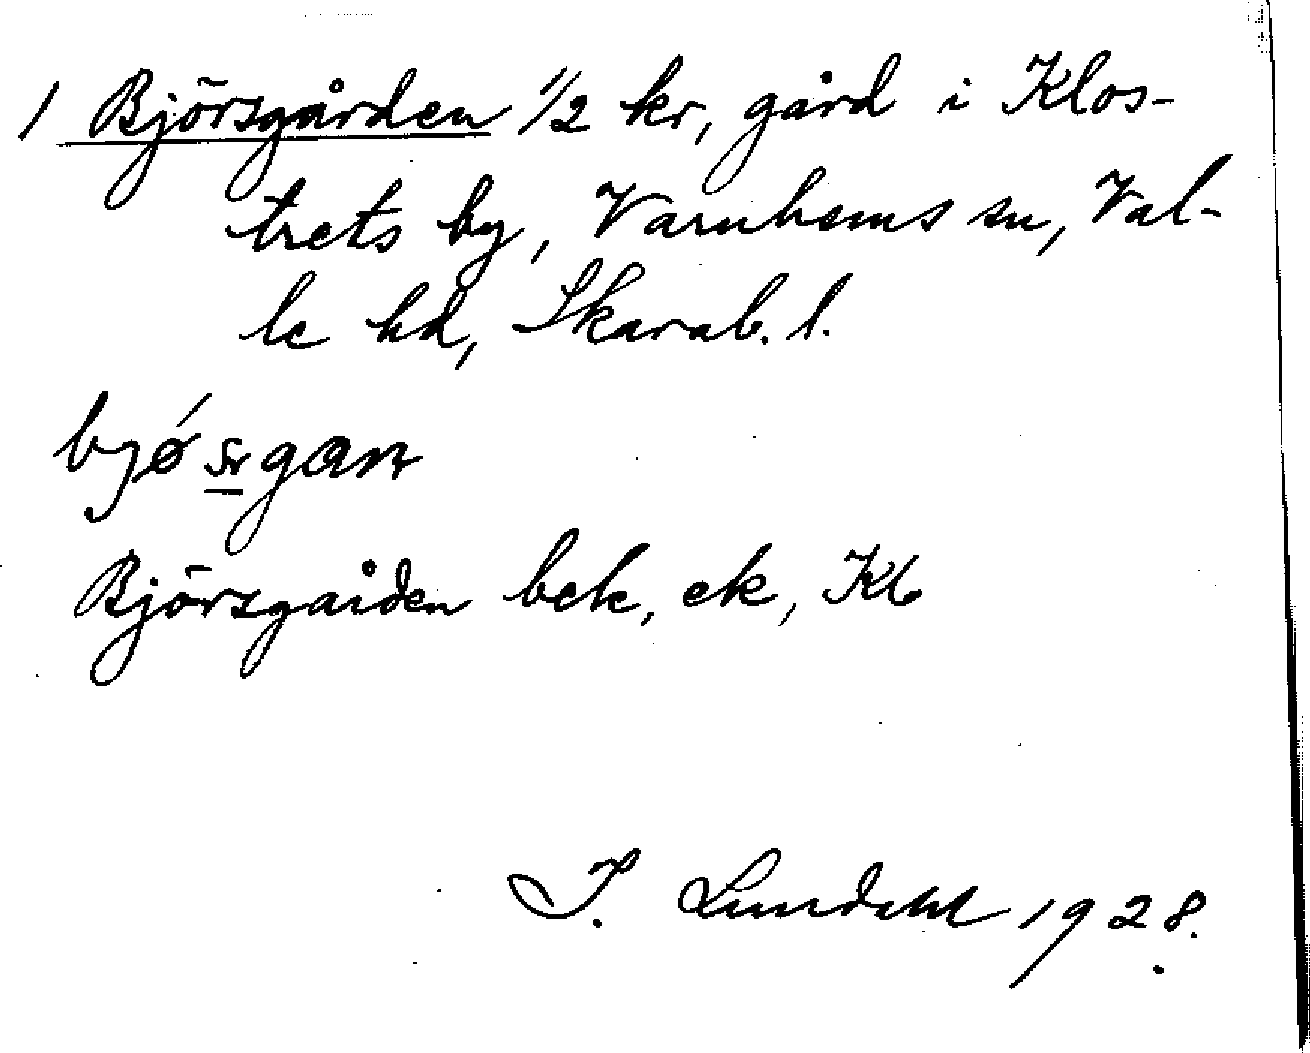 1 Björsgården 1/2 kr, gård i Klos-
trets by, Varnhems sn, Val-
le hd, Skarab. l.
bjǿ
Björsgården bek, ek, Kb
I. Lundahl 1928.